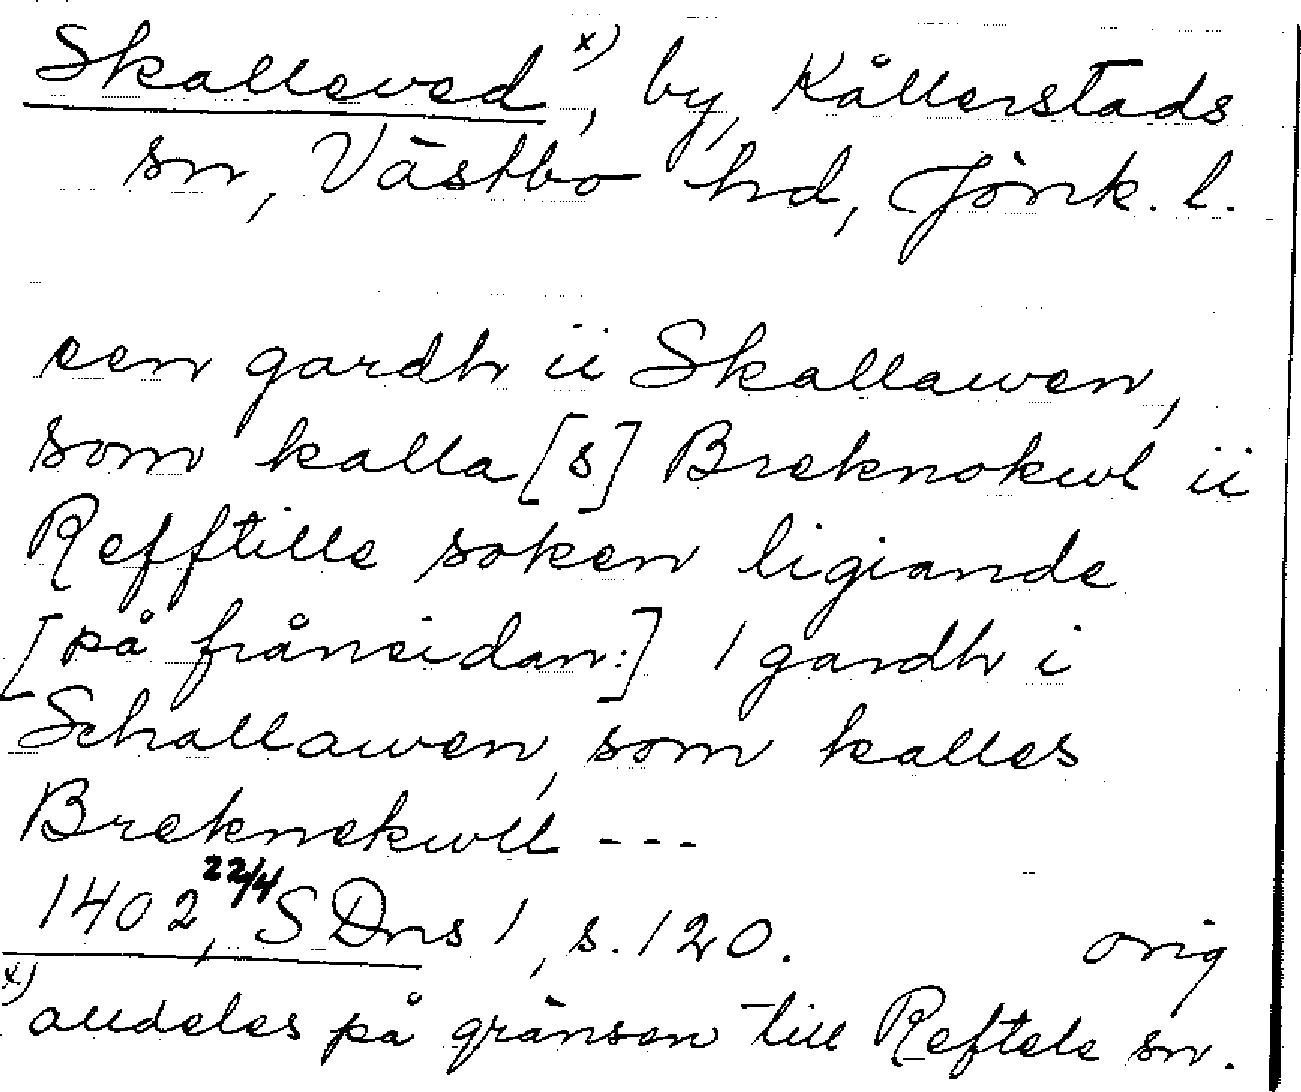 Skalleved x), by, Kållerstads
sn, Västbo hd, Jönk. l.
een gardh ii Skallawen,
som kalla[s] Breknokwl ii
Refftille soken ligiande
[på frånsidan:] 1 gardh i
Schallawen, som kalles
Breknekwll ---
1402 22/4, SDns 1, s. 120. orig
x) alldeles på gränsen till Reftele sn.